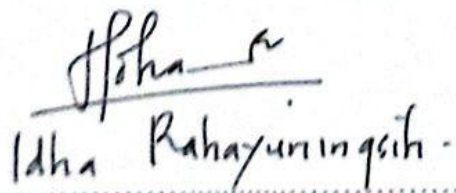 Idha Rahayuningsih.